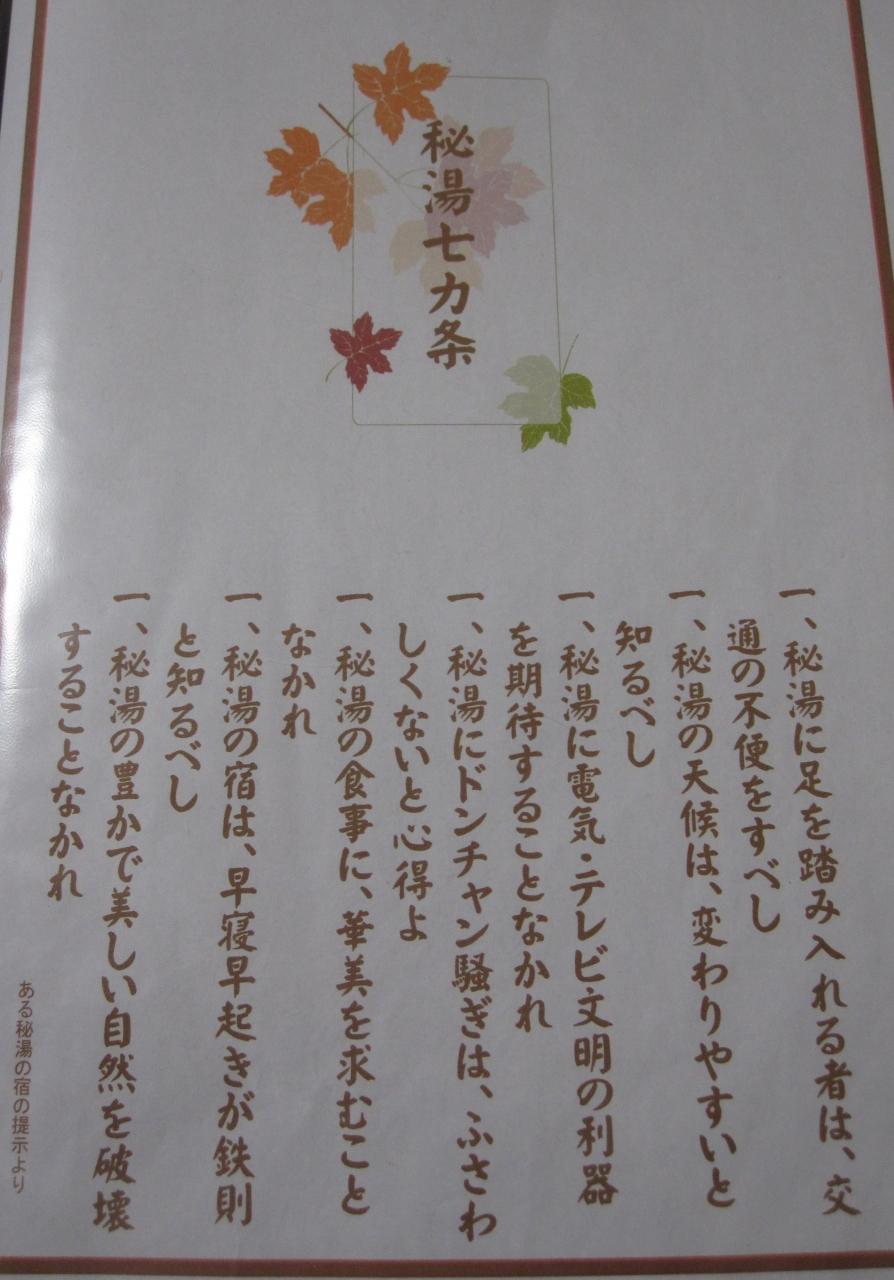 秘湯七カ条
一、秘湯に足を踏み入れる者は、交
通の不便をすべし
一、秘湯の天候は、変わりやすいと
知るべし
一、秘湯に電気・テレビ文明の利器
を期待することなかれ
一、秘湯にドンチャン騒ぎは、ふさわ
しくないと心得よ
一、秘湯の食事に、華美を求むこと
なかれ
一、秘湯の宿は、早寝早起きが鉄則
と知るべし
一、秘湯の豊かで美しい自然を破壊
することなかれ
ある秘湯の宿の提示より